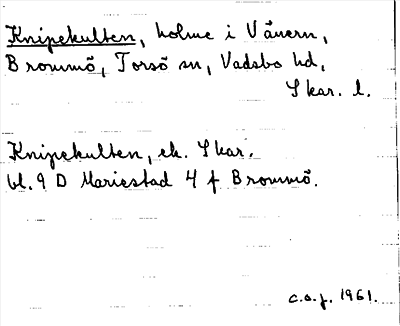 Knipekulten, holme i Vänern,
Brommö, Torsö sn, Vadsbo hd,
Skar. l.
Knipekulten, ek. Skar.
bl. 9 D Mariestad 4 f Brommö.
c.a.j. 1961.